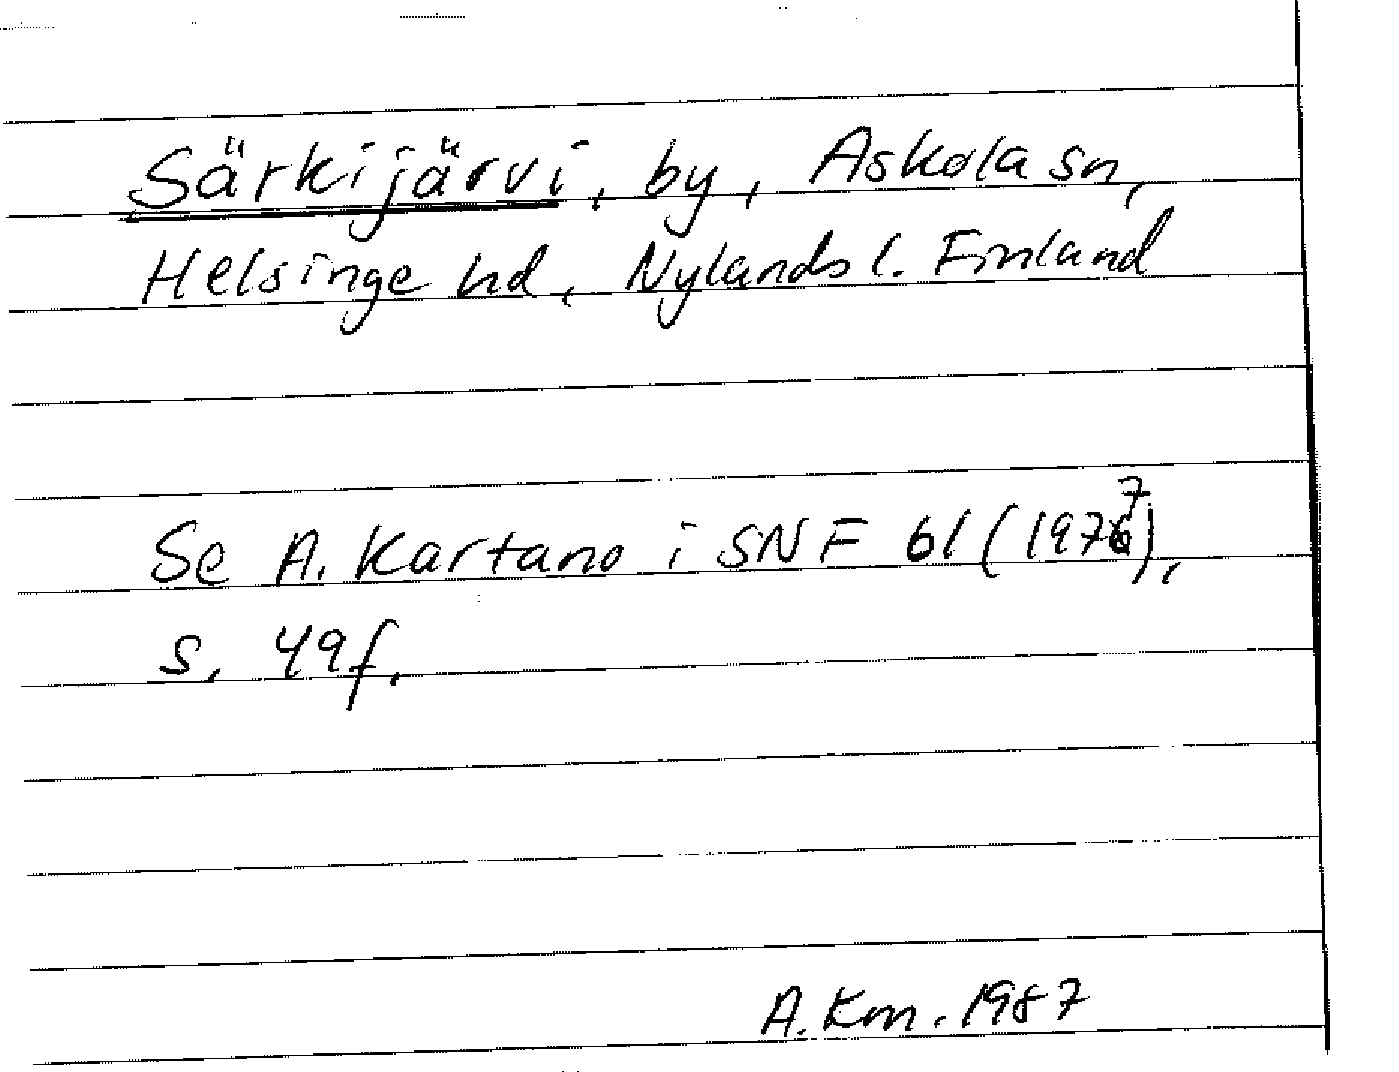 Särkijärvi, by, Askola sn,
Helsinge hd, Nylands l. Finland
Se A. Kartano i SNF 61 (1977),
s. 49f.
A. Km. 1987